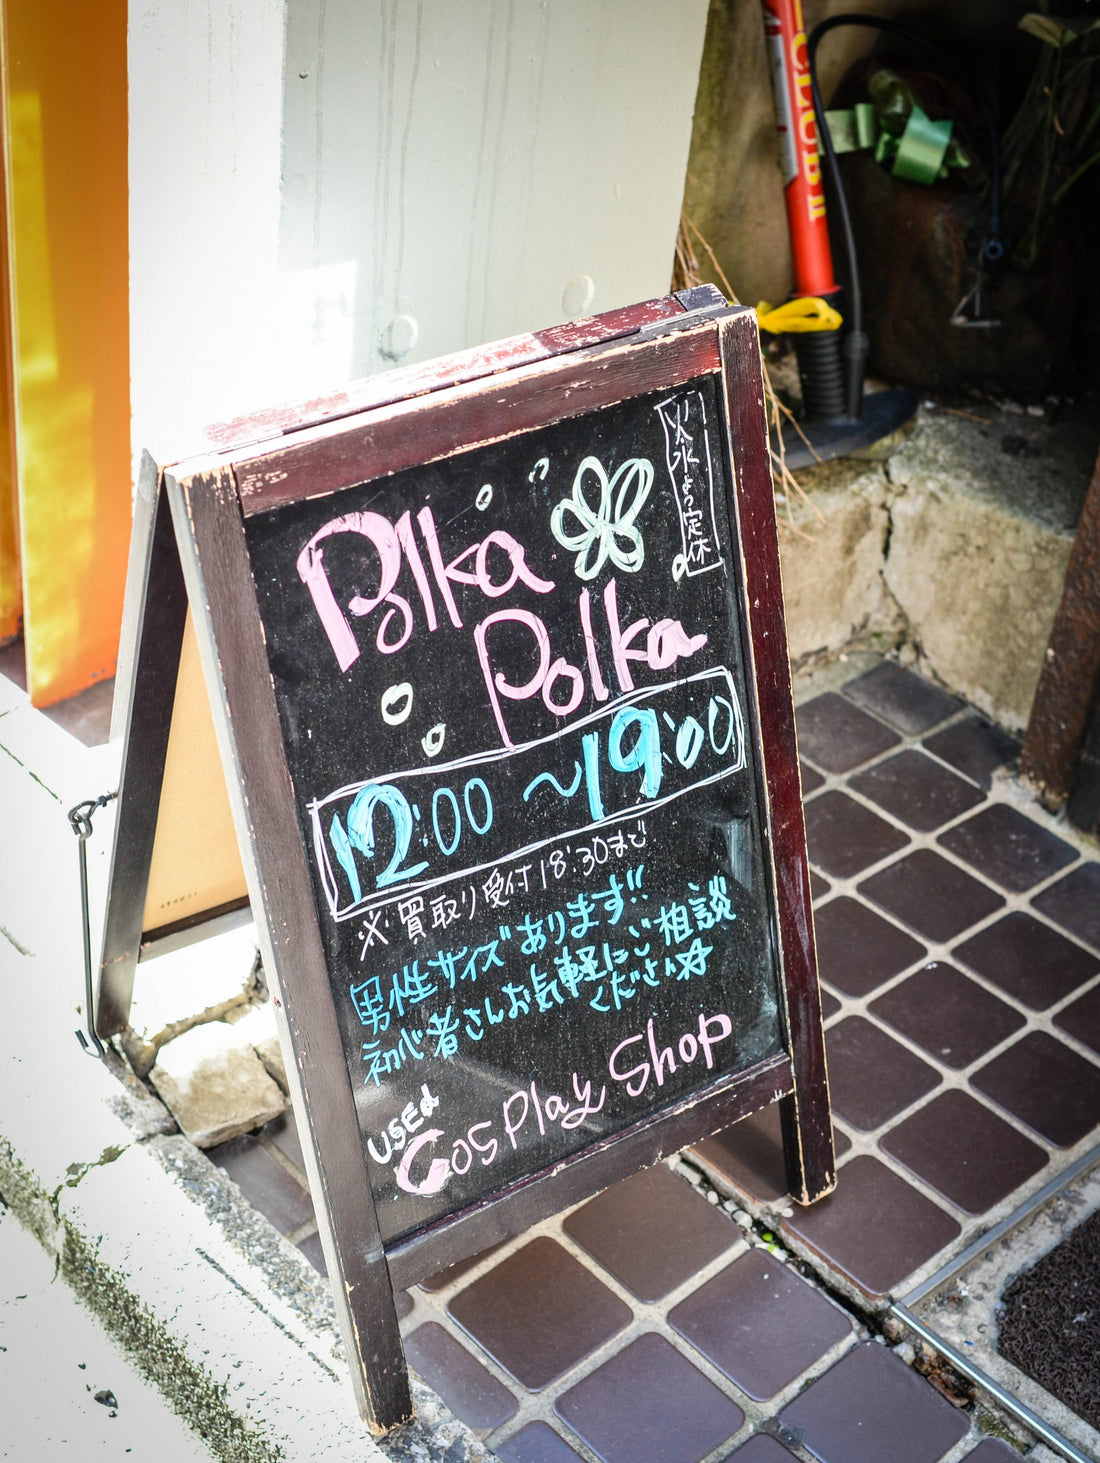 Polka
Polka
12:00 ~ 19:00
※買取り受付18:30まで
男性サイズあります!!
初心者さんお気軽にご相談
ください☆
USED
Cosplay Shop
定休
CLUB II